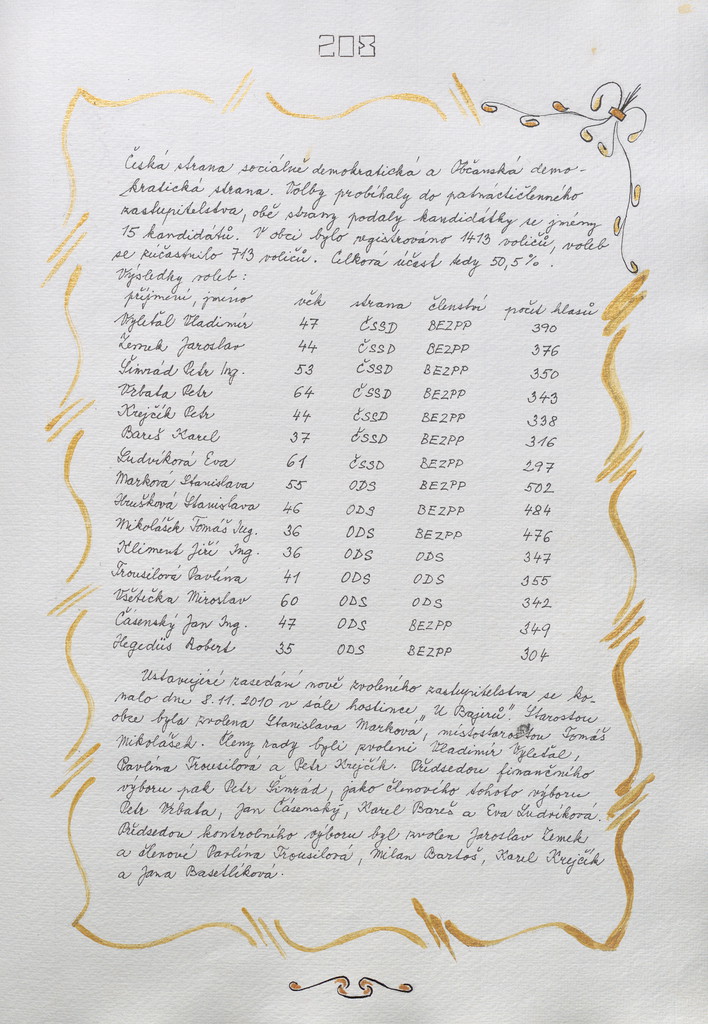 208
Česká strana sociálně demokratická a Občanská demo-
kratická strana. Volby probíhaly do patnáctičlenného
zastupitelstva, obě strany podaly kandidátky se jmény
15 kandidátů. V obci bylo registrováno 1413 voličů, voleb
se zúčastnilo 713 voličů. Celková účast tedy 50,5%.
Výsledky voleb:
příjmení, jméno věk strana členství počet hlasů
Vyleťal Vladimír 47 ČSSD BEZPP 390
Zemek Jaroslav 44 ČSSD BEZPP 376
Šimrád Petr Ing. 53 ČSSD BEZPP 350
Vrbata Petr 64 ČSSD BEZPP 343
Krejčík Petr 44 ČSSD BEZPP 338
Bareš Karel 37 ČSSD BEZPP 316
Ludvíková Eva 61 ČSSD BEZPP 297
Marková Stanislava 55 ODS BEZPP 502
Hrušková Stanislava 46 ODS BEZPP 484
Mikolášek Tomáš Ing. 36 ODS BEZPP 476
Kliment Jiří Ing. 36 ODS ODS 347
Trousilová Pavlína 41 ODS ODS 355
Všetička Miroslav 60 ODS ODS 342
Čásenský Jan Ing. 47 ODS BEZPP 349
Hegedüs Robert 35 ODS BEZPP 304
Ustavující zasedání nově zvoleného zastupitelstva se ko-
nalo dne 8.11.2010 v sále hostince "U Bajerů". Starostou
obce byla zvolena Stanislava Marková, místostarostou Tomáš
Mikolášek. Členy rady byli zvoleni Vladimír Vyleťal,
Pavlína Trousilová a Petr Krejčík. Předsedou finančního
výboru pak Petr Šimrád, jako členového tohoto výboru
Petr Vrbata, Jan Čásenský, Karel Bareš a Eva Ludvíková.
Předsedou kontrolního výboru byl zvolen Jaroslav Zemek
a členové Pavlína Trousilová, Milan Bartoš, Karel Krejčík
a Jana Basetlíková.